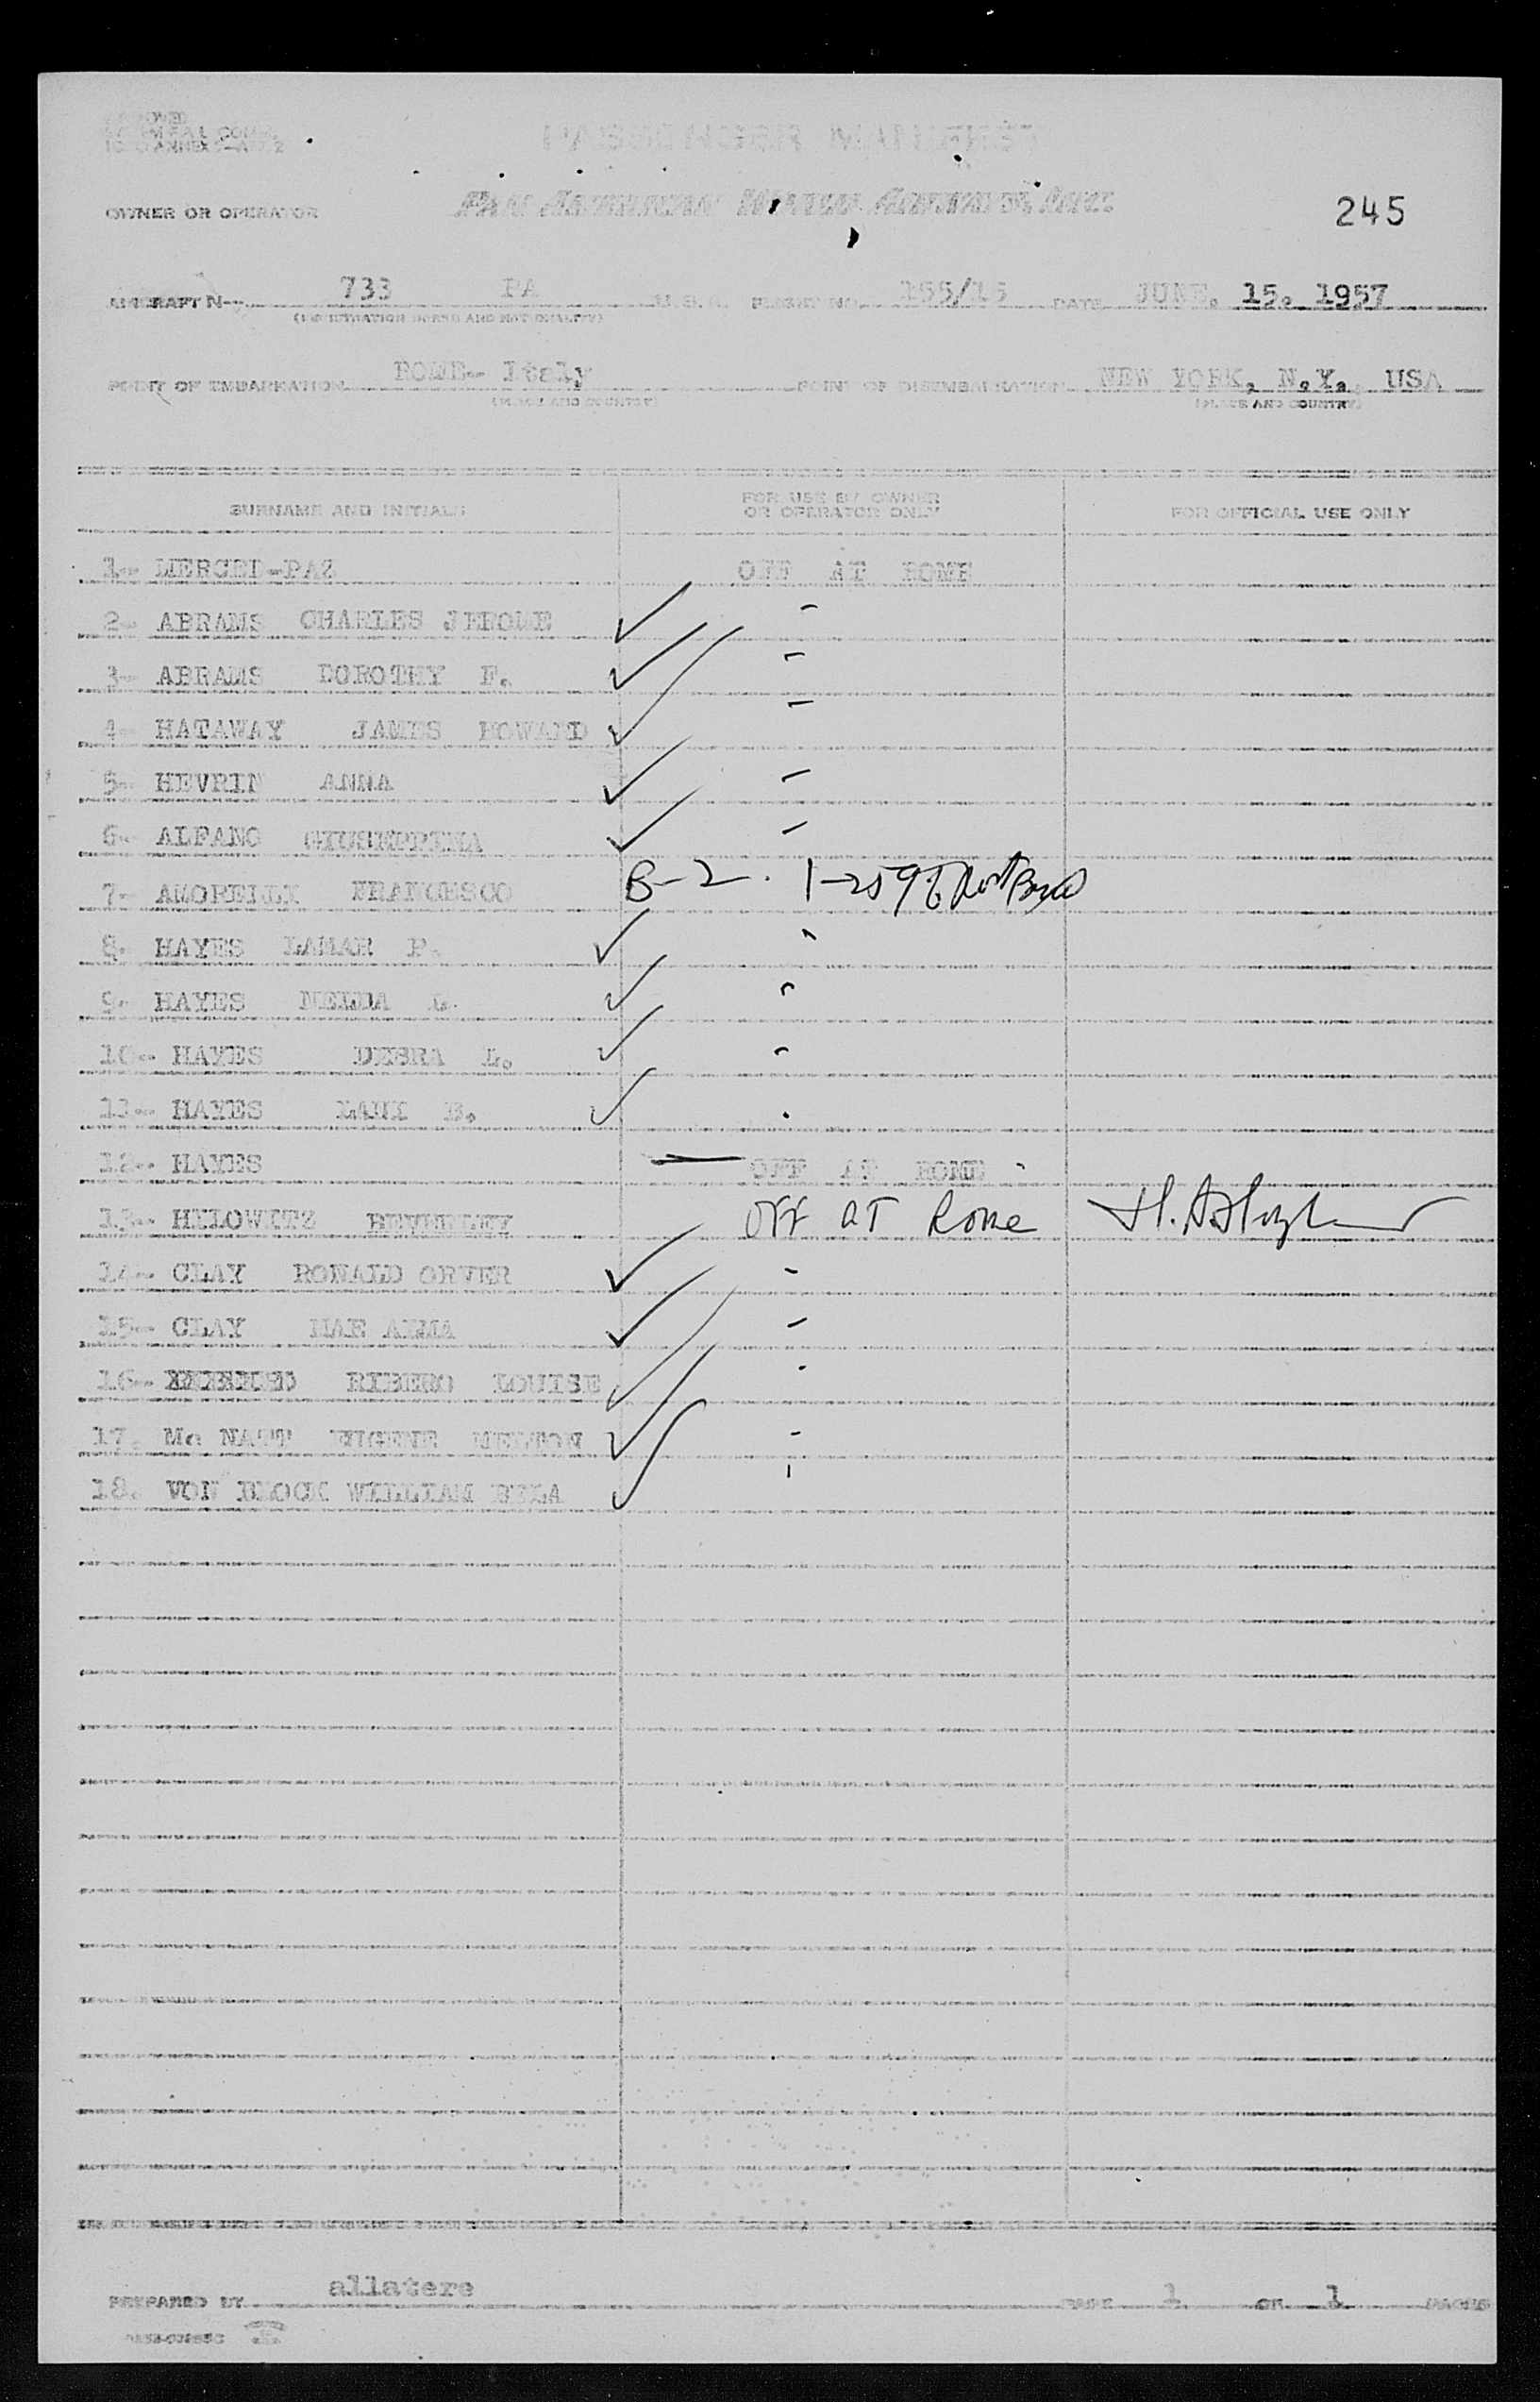 PASSENGER MANIFEST
OWNER OR OPERATOR PAN AMERICAN WORLD AIRWAYS, INC. 245
AIRCRAFT N-- 733 PA U.S.A. FLIGHT NO. 155/15 DATE JUNE. 15. 1957
(REGISTRATION MARKS AND NATIONALITY)
POINT OF EMBARKATION ROME- Italy POINT OF DISEMBARKATION NEW YORK, N.Y., USA
(PLACE AND COUNTRY) (PLACE AND COUNTRY)
SURNAME AND INITIALS FOR USE BY OWNER OR OPERATOR ONLY FOR OFFICIAL USE ONLY
1-- MERCED-PAZ OFF AT ROME
2- ABRAMS CHARLES JEROME
3- ABRAMS DOROTHY F.
4- HATAWAY JAMES HOWARD
5- HEVRIN ANNA
6- ALFANO GIUSEPPINA
7- AMORELLI FRANCESCO B-2. 1-259
8. HAYES LAMAR P.
9. HAYES MELBA L.
10-- HAYES DEBRA L.
11-- HAYES B.
12-- HAYES OFF AT ROME
13-- HILOWITZ BEVERLEY OFF AT Rome
14-- CLAY RONALD ORVER
15-- CLAY MAE ALMA
16-- RIBERO LOUISE
17. Mc EUGENE
18. VON BLOCK WILLIAM BELA
PREPARED BY allatere PAGE 1 OF 1 PAGES